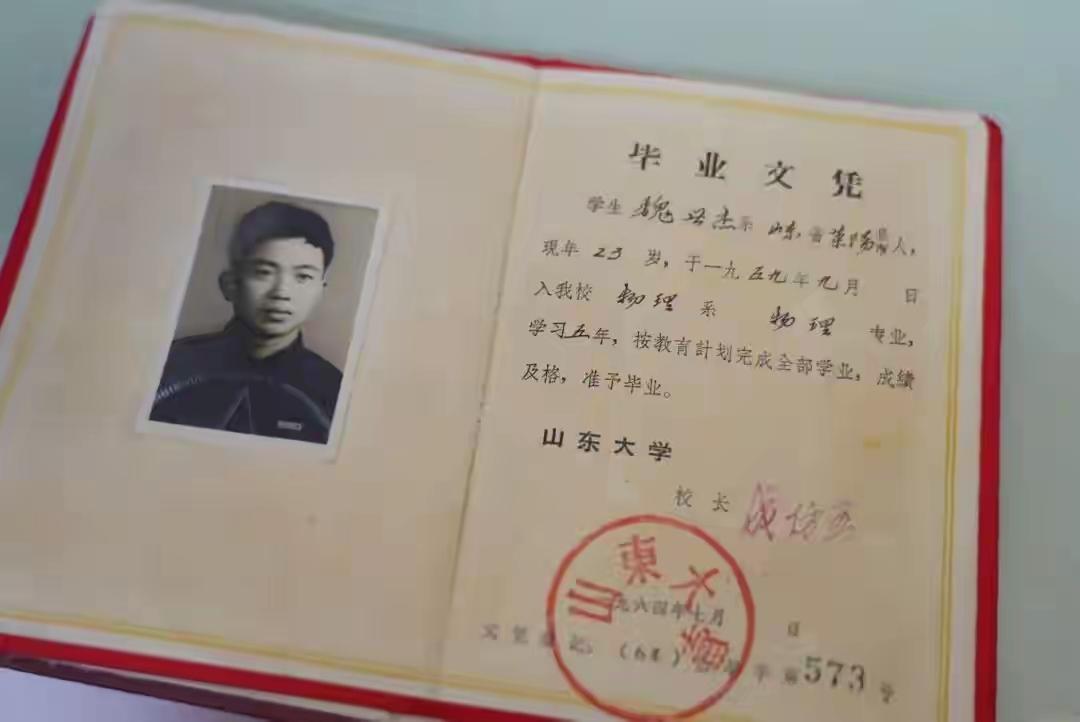 毕业文凭
学生 魏兴杰 系 山东 省 莱阳 县市 人，
现年 23 岁，于一九五九年九月 日
入我校 物理 系 物理 专业，
学习五年，按教育計划完成全部学业，成績
及格，准予毕业。
山东大学
校长 成仿吾
山東大學
一九六四年七月 日
文凭登記：(64) 字第573号